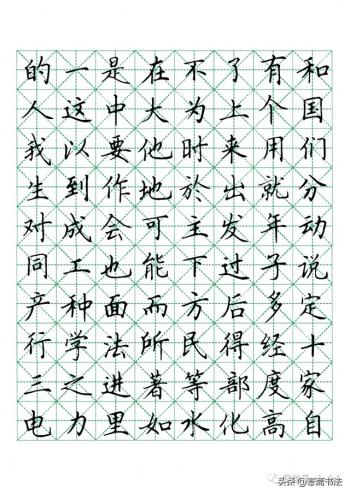 的一是在不了有和
人这中大为上个国
我以要他时来用们
生到作地於出就分
对成会可主发年动
同工也能下过子说
产种面而方后多定
行学法所民得经十
三之进著等部度家
电力里如水化高自